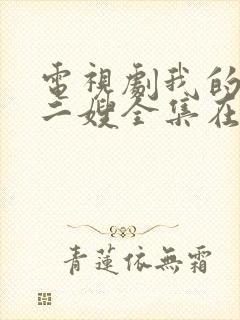 電視劇我的
二嫂全集在
青蓮依無霜